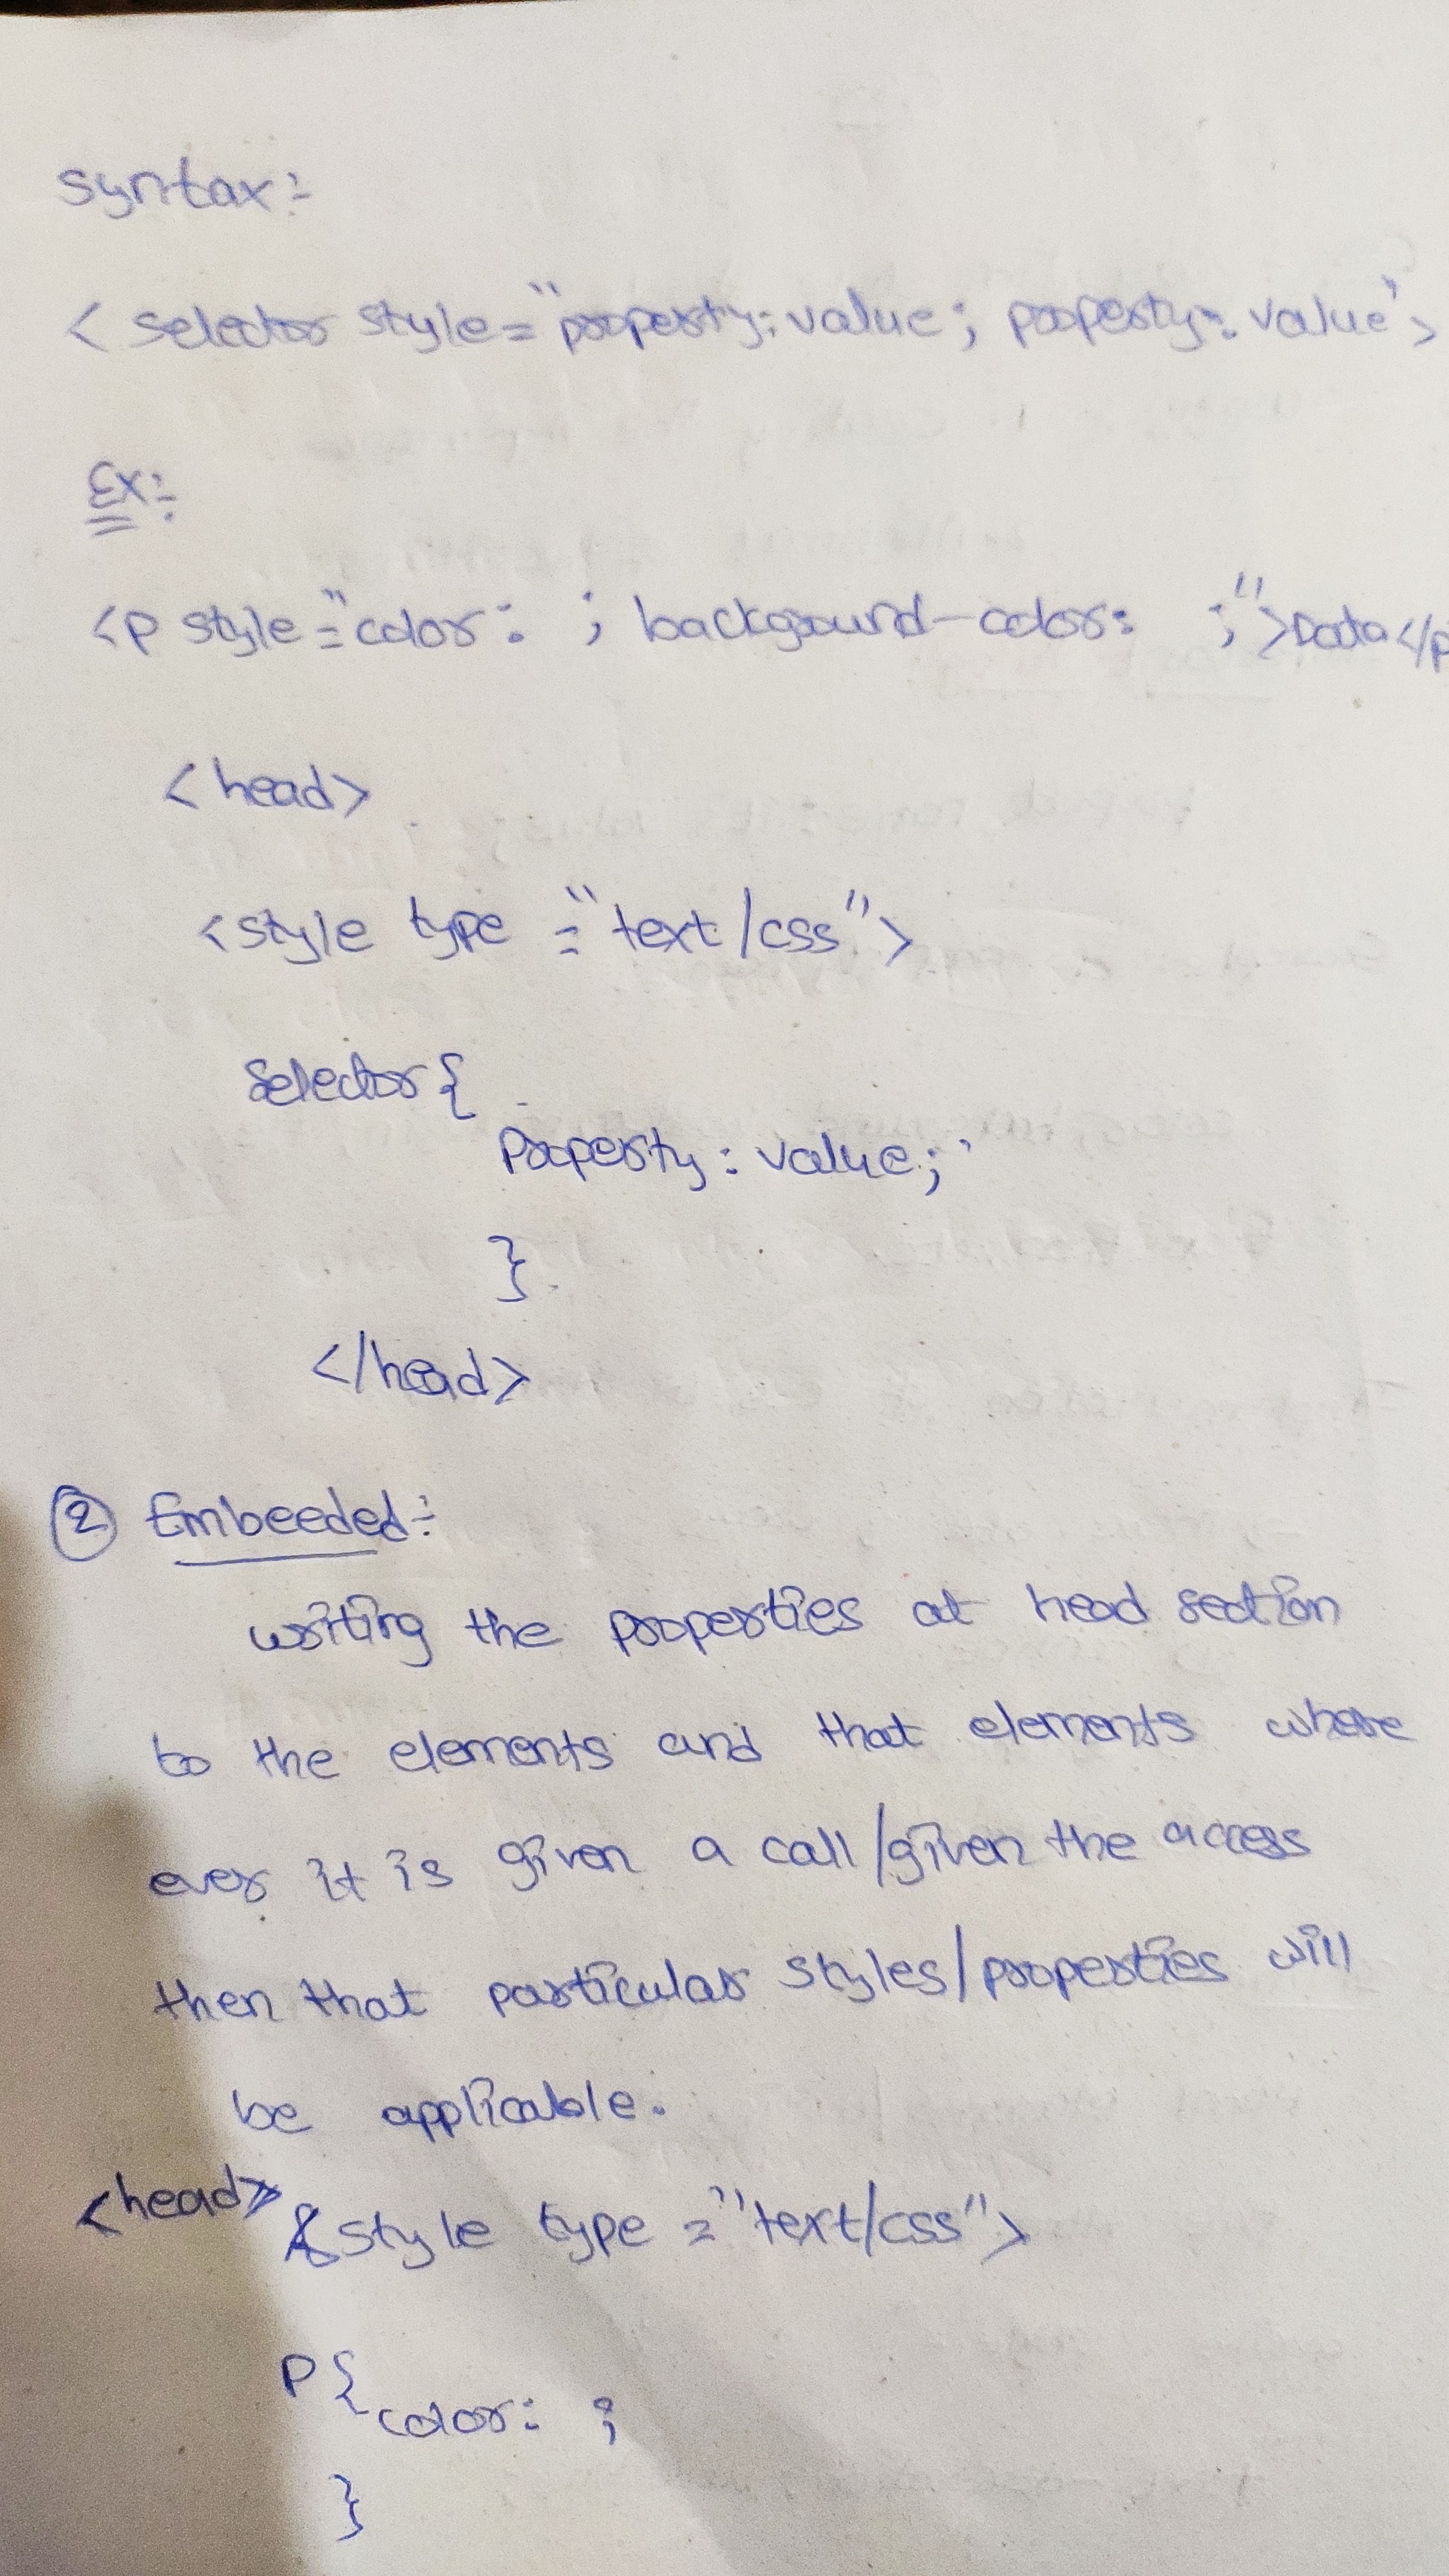 syntax:-
<selector style="property:value; property:value">
Ex:-
<p style="color: ; background-color: ;">Data</p
<head>
<style type="text/css">
Selector{
Property: value;
}
</head>
② Embeeded:-
writing the properties at head section
to the elements and that elements where
ever it is given a call/given the access
then that particular styles/properties will
be applicable.
<head>
<style type="text/css">
P{
color: ;
}